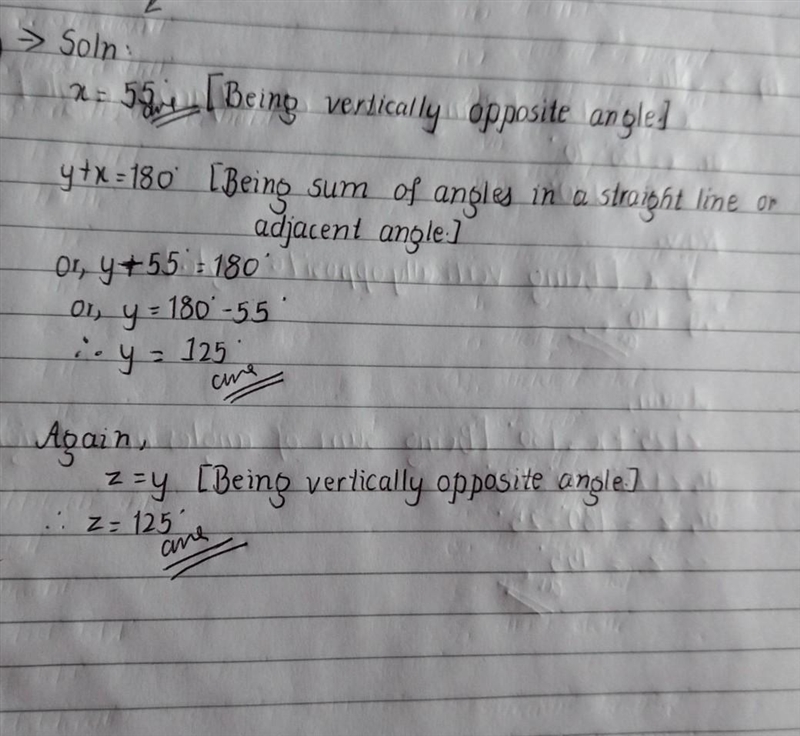 ⇒ Soln:
x = 55° ans [Being vertically opposite angle]
y+x = 180° [Being sum of angles in a straight line or
adjacent angle.]
or, y+55° = 180°
or, y = 180° - 55°
∴ y = 125°
ans
Again,
z = y [Being vertically opposite angle.]
∴ z = 125°
ans